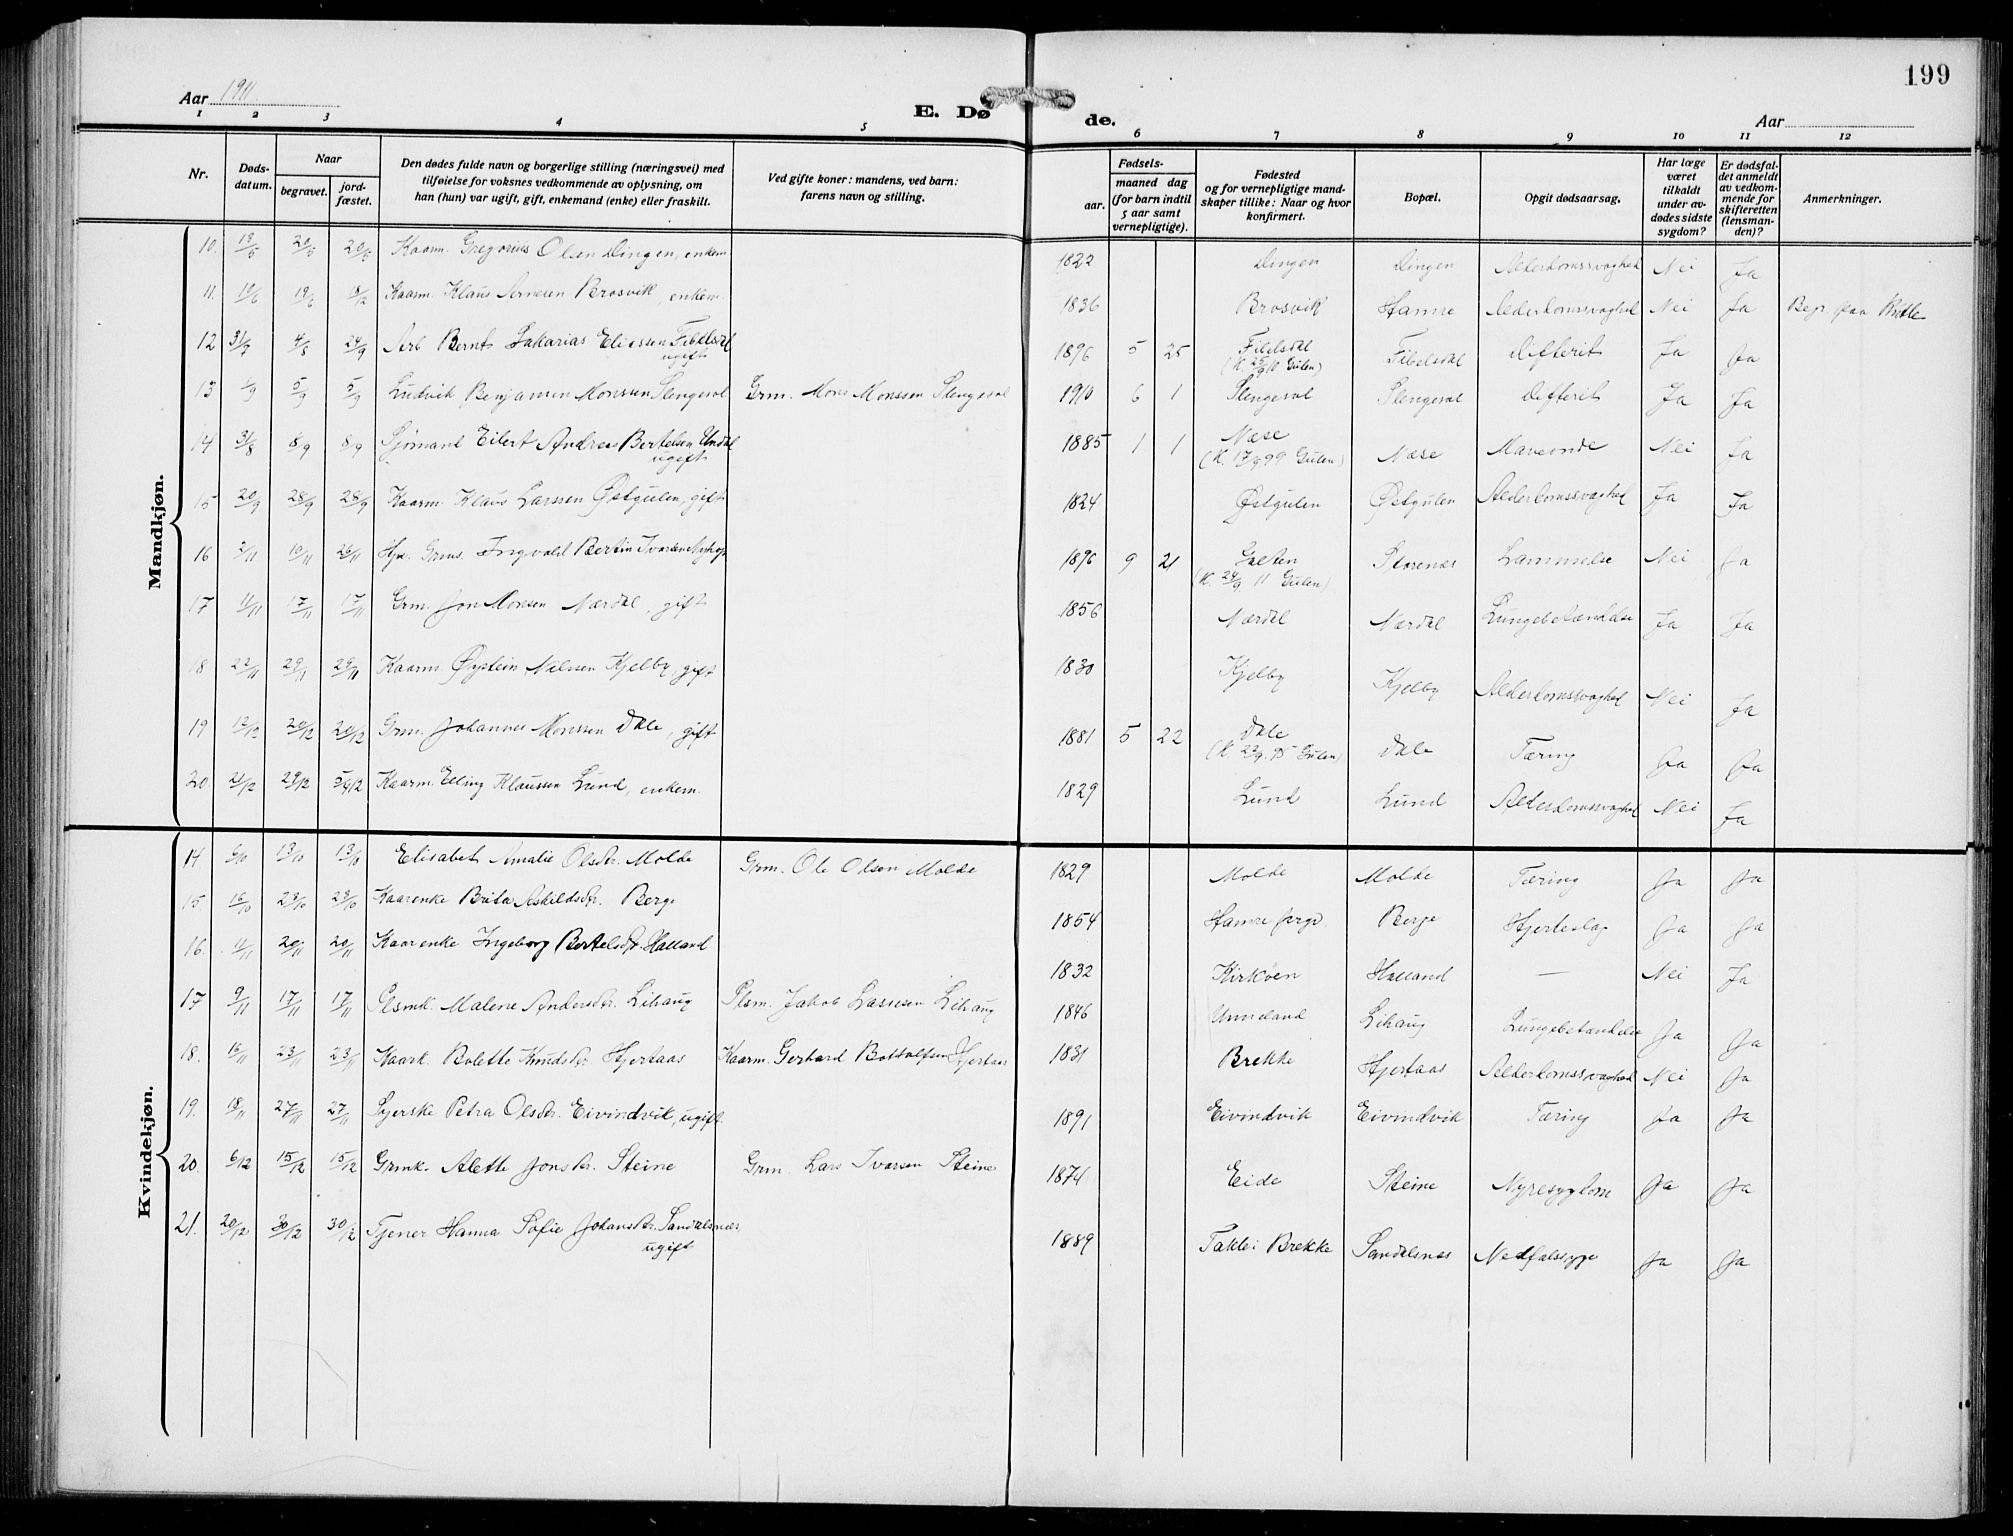 199
Aar 1911. E. Dø de. Aar
1 2 3 4 5 6 7 8 9 10 11 12
Nr. Døds-datum. Naar begravet. jord-fæstet. Den dødes fulde navn og borgerlige stilling (næringsvei) med tilføielse for voksnes vedkommende av oplysning, om han (hun) var ugift, gift, enkemand (enke) eller fraskilt. Ved gifte koner: mandens, ved barn: farens navn og stilling. Fødsels- aar. maaned dag (for barn indtil 5 aar samt vernepligtige). Fødested og for vernepligtige mandskaper tillike: Naar og hvor konfirmert. Bopæl. Opgit dødsaarsag. Har læge været tilkaldt under avdødes sidste sygdom? Er dødsfaldet anmeldt av vedkommende for skifteretten (lensmanden)? Anmerkninger.
Mandkjøn.
10. 13/5 20/5 20/5 Kaarm. Gregorius Olsen Dingen, enkem. 1822 Dingen Dingen Alderdomssvaghed Nei Ja
11. 10/6 19/6 18/12 Kaarm. Klaus Arnesen Brosvik, enkem. 1836 Brosvik Hamre Alderdomssvaghed Nei Ja Begr. paa Rutle
12 31/7 4/8 24/9 Arb Bernt Sakarias Eliessen Fibelsdal
ugift 1896 5 25 Fibelsdal Fibelsdal Difterit Ja Ja
(K. 25/9 10 Gulen)
13 1/9 5/9 5/9 Ludvik Benjamin Monssen Slengesol Grm. Mons Monssen Slengesol 1910 6 1 Slengesol Slengesol Difterit Ja Ja
14 31/8 8/9 8/9 Sjømand Eilert Andreas Bertelsen Undal
ugift 1885 1 1 Næse Næse Maveonde Nei Ja
(K. 17/9 99 Gulen)
15 20/9 28/9 28/9 Kaarm. Klaus Larssen Østgulen, gift 1824 Østgulen Østgulen Alderdomssvaghed Ja Ja
16 3/11 10/11 26/11 Grms. Ingvald Bertin Ivarsen 1896 9 21 Storenes Lammelse Nei Ja
(K. 24/9 11 Gulen)
17 11/11 17/11 17/11 Grm. Jon Monsen Nærdal, gift 1856 Nærdal Nærdal Lungebetændelse Ja Ja
18 22/11 29/11 29/11 Kaarm Øystein Nilssen Kjelby, gift 1830 Kjelby Kjelby Alderdomssvaghed Nei Ja
19 12/12 20/12 20/12 Grm. Johannes Monssen Dale, gift 1881 5 22 Dale Dale Tæring Ja Ja
(K. 22/9. 95 Gulen)
20 21/12 29/12 Kaarm. Elling Klaussen Lund, enkem. 1829 Lund Lund Alderdomssvaghed Nei Ja
Kvindekjøn.
14. 6/10 13/10 13/10 Elisabet Amalie Olsdtr. Molde Grm. Ole Olsen Molde 1829 Molde Molde Tæring Ja Ja
15. 16/10 23/10 23/10 Kaarenke Brita Askildsdtr. Berge 1854 Hamre prgd. Berge Hjerteslag Ja Ja
16. 11/11 20/11 20/11 Kaarenke Ingeborg Bertelsdtr. Halland 1832 Kirkøen Halland — Nei Ja
17 9/11 17/11 17/11 Plsmk. Malene Andersdtr. Lihaug Plsm. Jakob Lassesen Lihaug 1846 Unneland Lihaug Lungebetændelse Ja Ja
18. 16/11 23/11 23/11 Kaark. Bolette Knudsdtr. Hjertaas Kaarm. Gerhard Bottolfsen Hjertaas 1831 Brekke Hjertaas Alderdomssvaghed Nei Ja
19. 18/11 27/11 27/11 Syerske Petra Olsdtr. Eivindvik, ugift. 1891 Eivindvik Eivindvik Tæring Ja Ja
20. 6/12 15/12 15/12 Grmk. Alette Jonsdtr. Steine Grm. Lars Ivarsen Steine 1874 Eide Steine Nyresygdom Ja Ja
21. 20/12 30/12 30/12 Tjener Hanna Sofie Johansdtr. Sandalsnæs
ugift 1889 Takle i Brekke Sandalsnæs Nedfalssyge Ja Ja